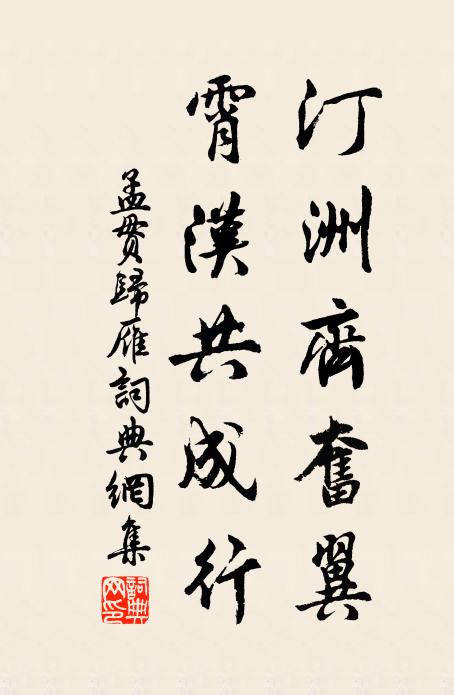 汀洲齊奮翼
霄漢共成行
孟貫歸雁詞典網集
詞典網印